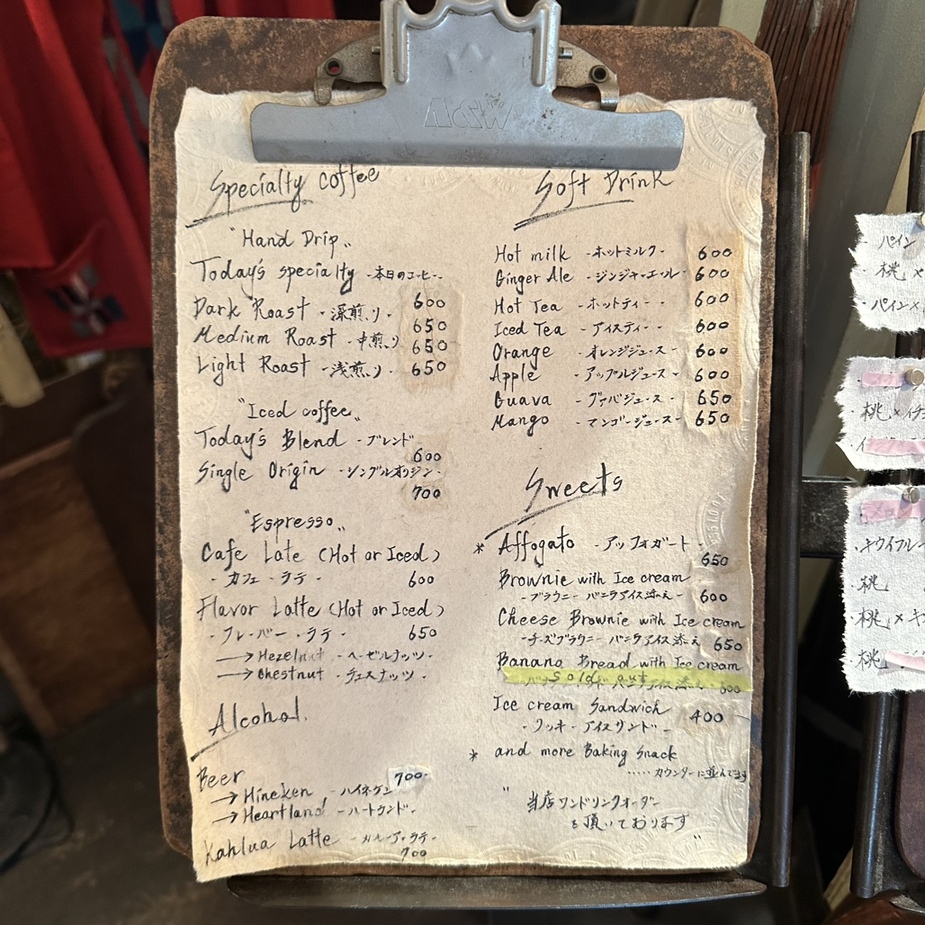 Specialty Coffee
"Hand Drip"
Today's specialty -本日のコーヒー-
600
Dark Roast -深煎り- 650
Medium Roast -中煎り 650
Light Roast -浅煎り- 650
"Iced coffee"
Today's Blend -ブレンド-
600
Single Origin -シングルオリジン-
700
"Espresso"
Cafe Late (Hot or Iced)
-カフェ・ラテ- 600
Flavor Latte (Hot or Iced)
-フレーバー・ラテ- 650
→Hezelnut -ヘーゼルナッツ-
→chestnut -チェスナッツ-
Alcohol
Beer 700-
→Hineken -ハイネケン
→Heartland -ハートランド-
Kahlua Latte -カルーア・ラテ-
700
Soft Drink
Hot milk -ホットミルク- 600
Ginger Ale -ジンジャーエール- 600
Hot Tea -ホットティー- 600
Iced Tea -アイスティー- 600
Orange -オレンジジュース- 600
Apple -アップルジュース- 600
Guava -グァバジュース- 650
Mango -マンゴージュース- 650
Sweets
* Affogato -アッフォガート-
650
Brownie with Ice cream
-ブラウニー バニラアイス添え- 600
Cheese Brownie with Ice cream
-チーズブラウニー バニラアイス添え 650
Banana Bread with Ice cream
Sold out
バニラアイス添え- 600
Ice cream Sandwich 400
-クッキーアイスサンド-
* and more Baking Snack
……カウンターに並んでます
"当店ワンドリンクオーダー
を頂いております"
パイン
・桃 ×
・パイン×
・桃×イチ
・キウイフルー
・桃
・桃×キ
・桃